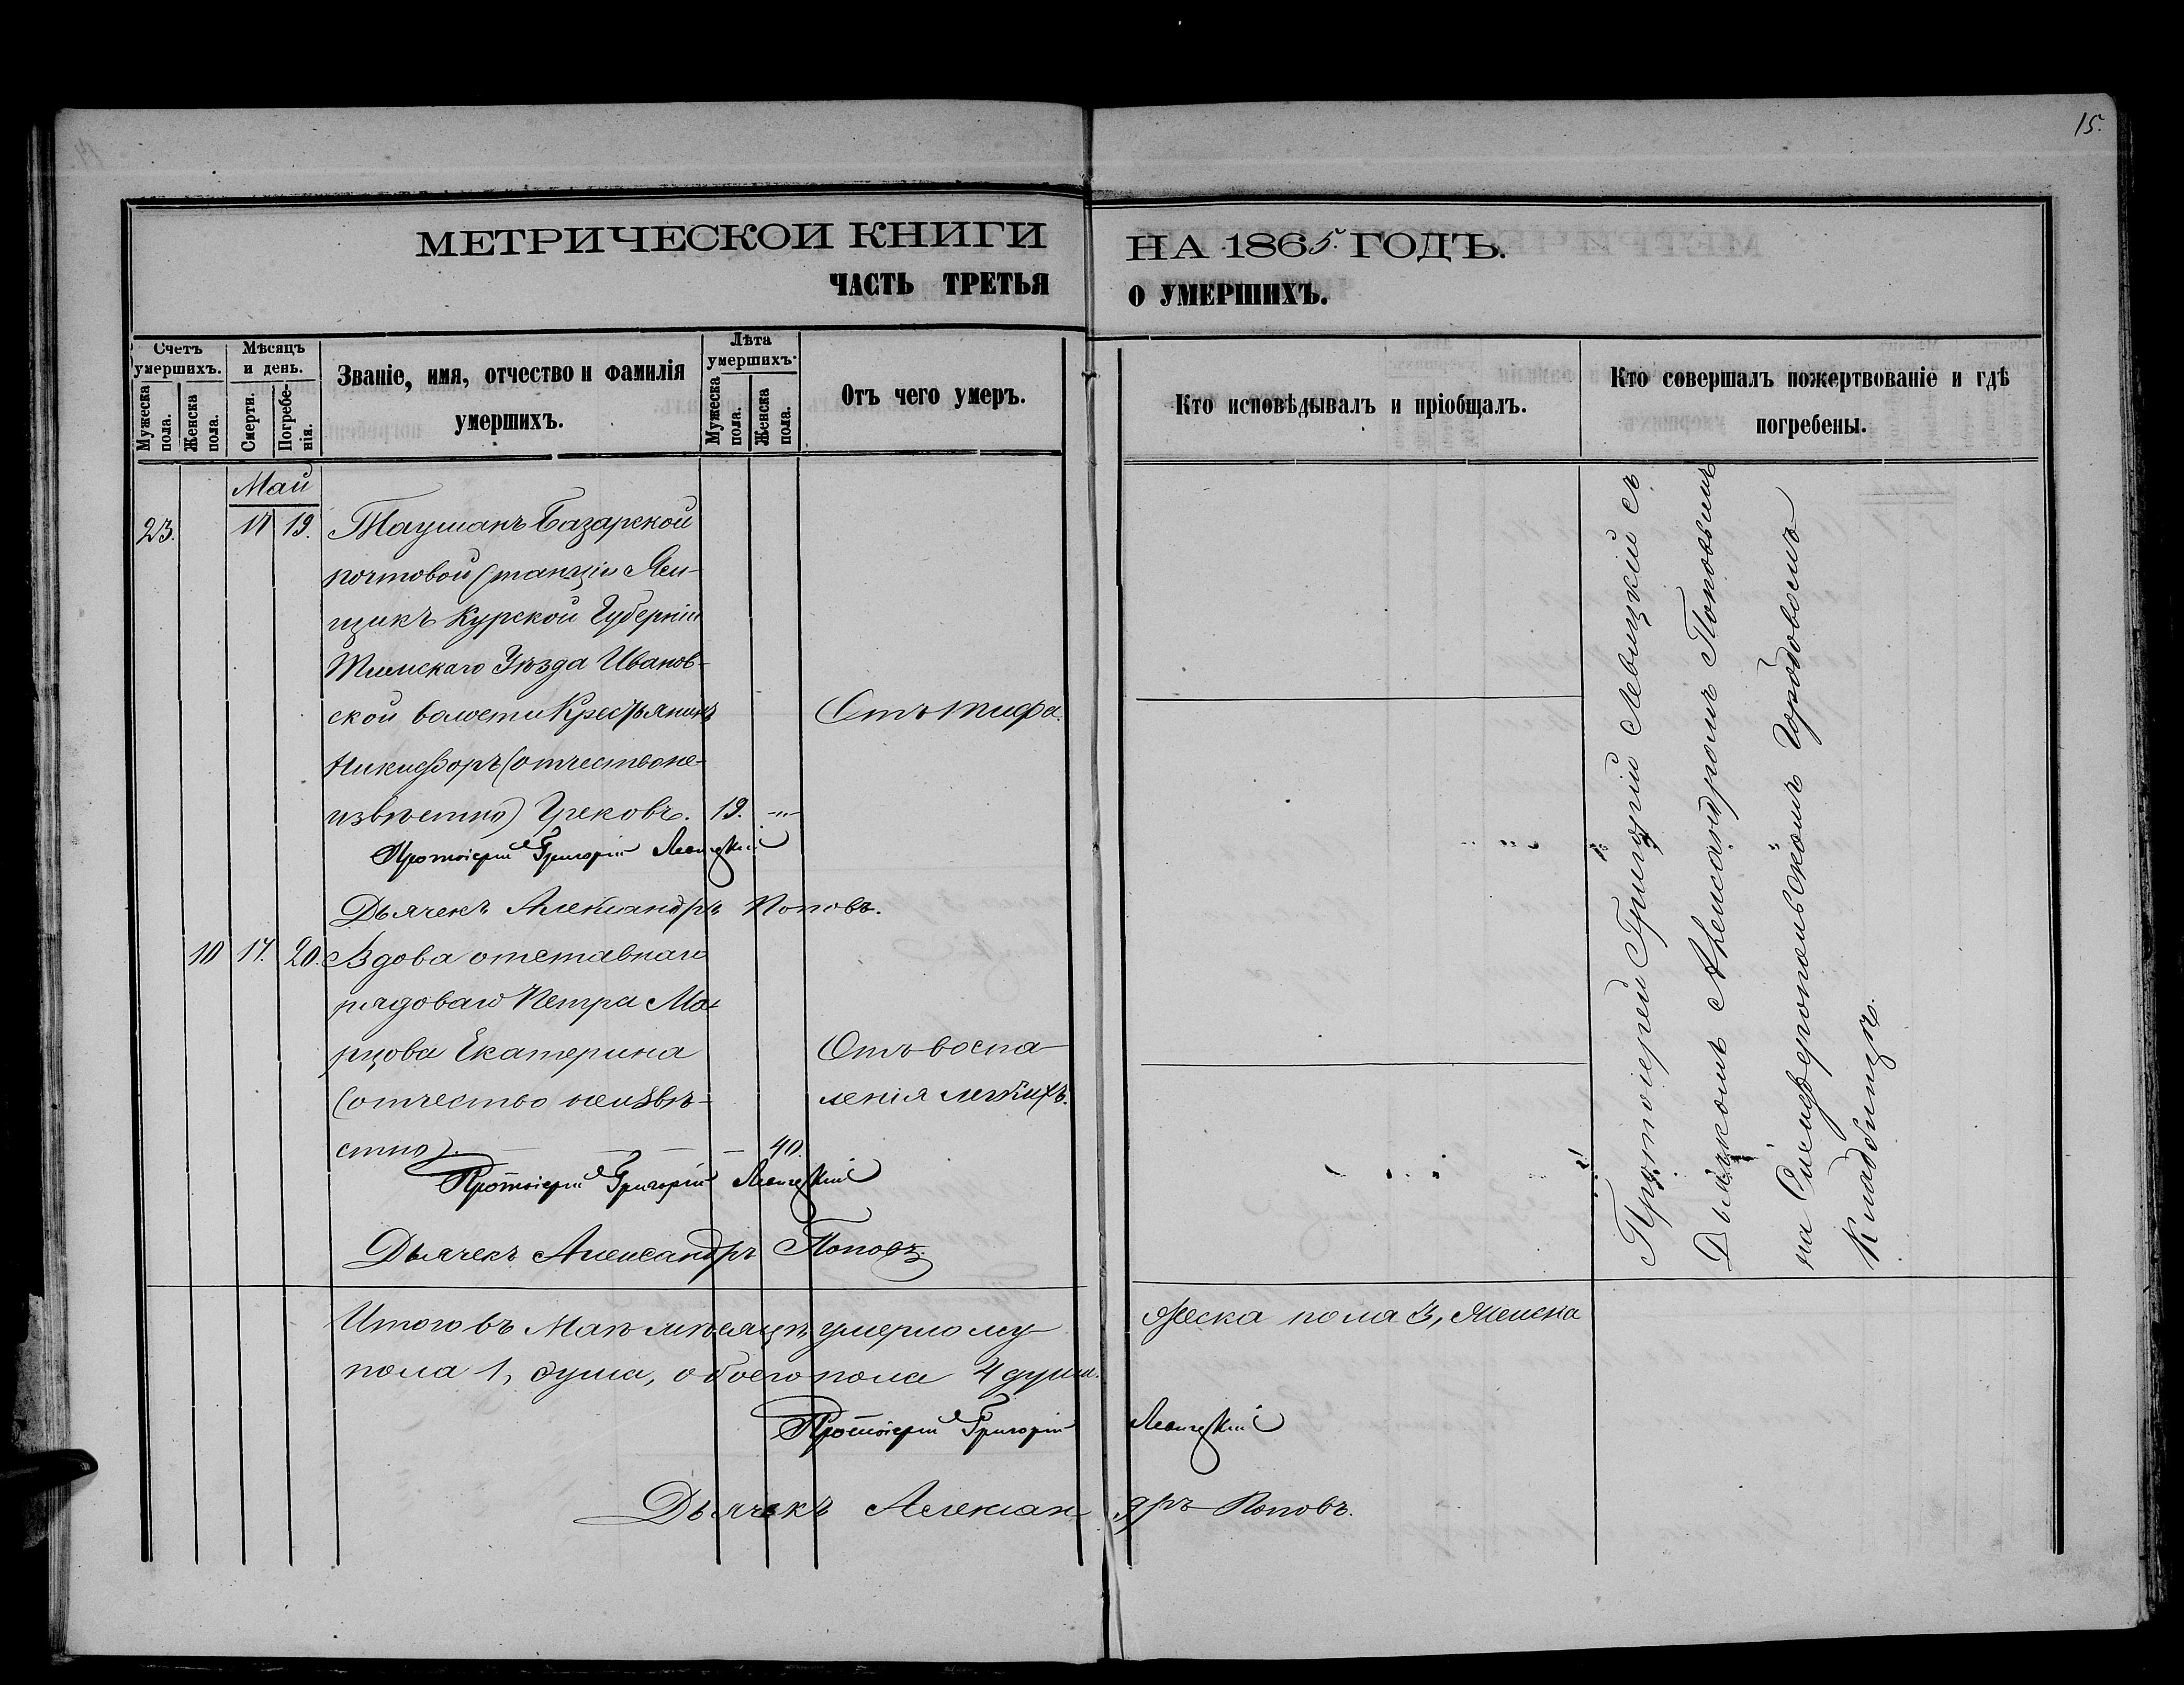 15.
МЕТРИЧЕСКОЙ КНИГИ НА 1865. ГОДЪ.
ЧАСТЬ ТРЕТЬЯ О УМЕРШИХЪ.
Счетъ умершихъ.
Мужеска пола.
Женска пола.
Мѣсяцъ и день.
Смерти.
Погребе-нія.
Званіе, имя, отчество и фамилія
умершихъ.
Лѣта умершихъ.
Мужеска пола.
Женска пола.
Отъ чего умеръ.
Кто исповѣдывалъ и пріобщалъ.
Кто совершалъ пожертвованіе и гдѣ
погребены.
Май
23. 17 19. Таушанъ Базарской
почтовой Станціи Ям-
щикъ Курской Губерніи
Тимскаго Уѣзда Иванов-
ской волости Крестьянинъ Отъ тифа.
Никифоръ (отчество не-
извѣстно) Грековъ. 19. -"-
Протоіерей Григорій Левицкій
Дьячекъ Александръ Поповъ.
10 17. 20. Вдова отставнаго
рядоваго Петра Ма-
рцова Екатерина Отъ воспа-
(отчество неизвѣ- ленія легкихъ.
стно). 40.
Протоіерей Григорій Левицкій
Дьячекъ Александръ Поповъ.
Протоіерей Григорій Левицкій съ
Дьячкомъ Александромъ Поповымъ
на Симферопольскомъ Городовомъ
Кладбищѣ.
Итого въ Маѣ мѣсяцѣ умерло му- жеска пола 3, Женска
пола 1, душа, обоего пола 4 души.
Протоіерей Григорій Левицкій
Дьячекъ Алексан- дръ Поповъ.